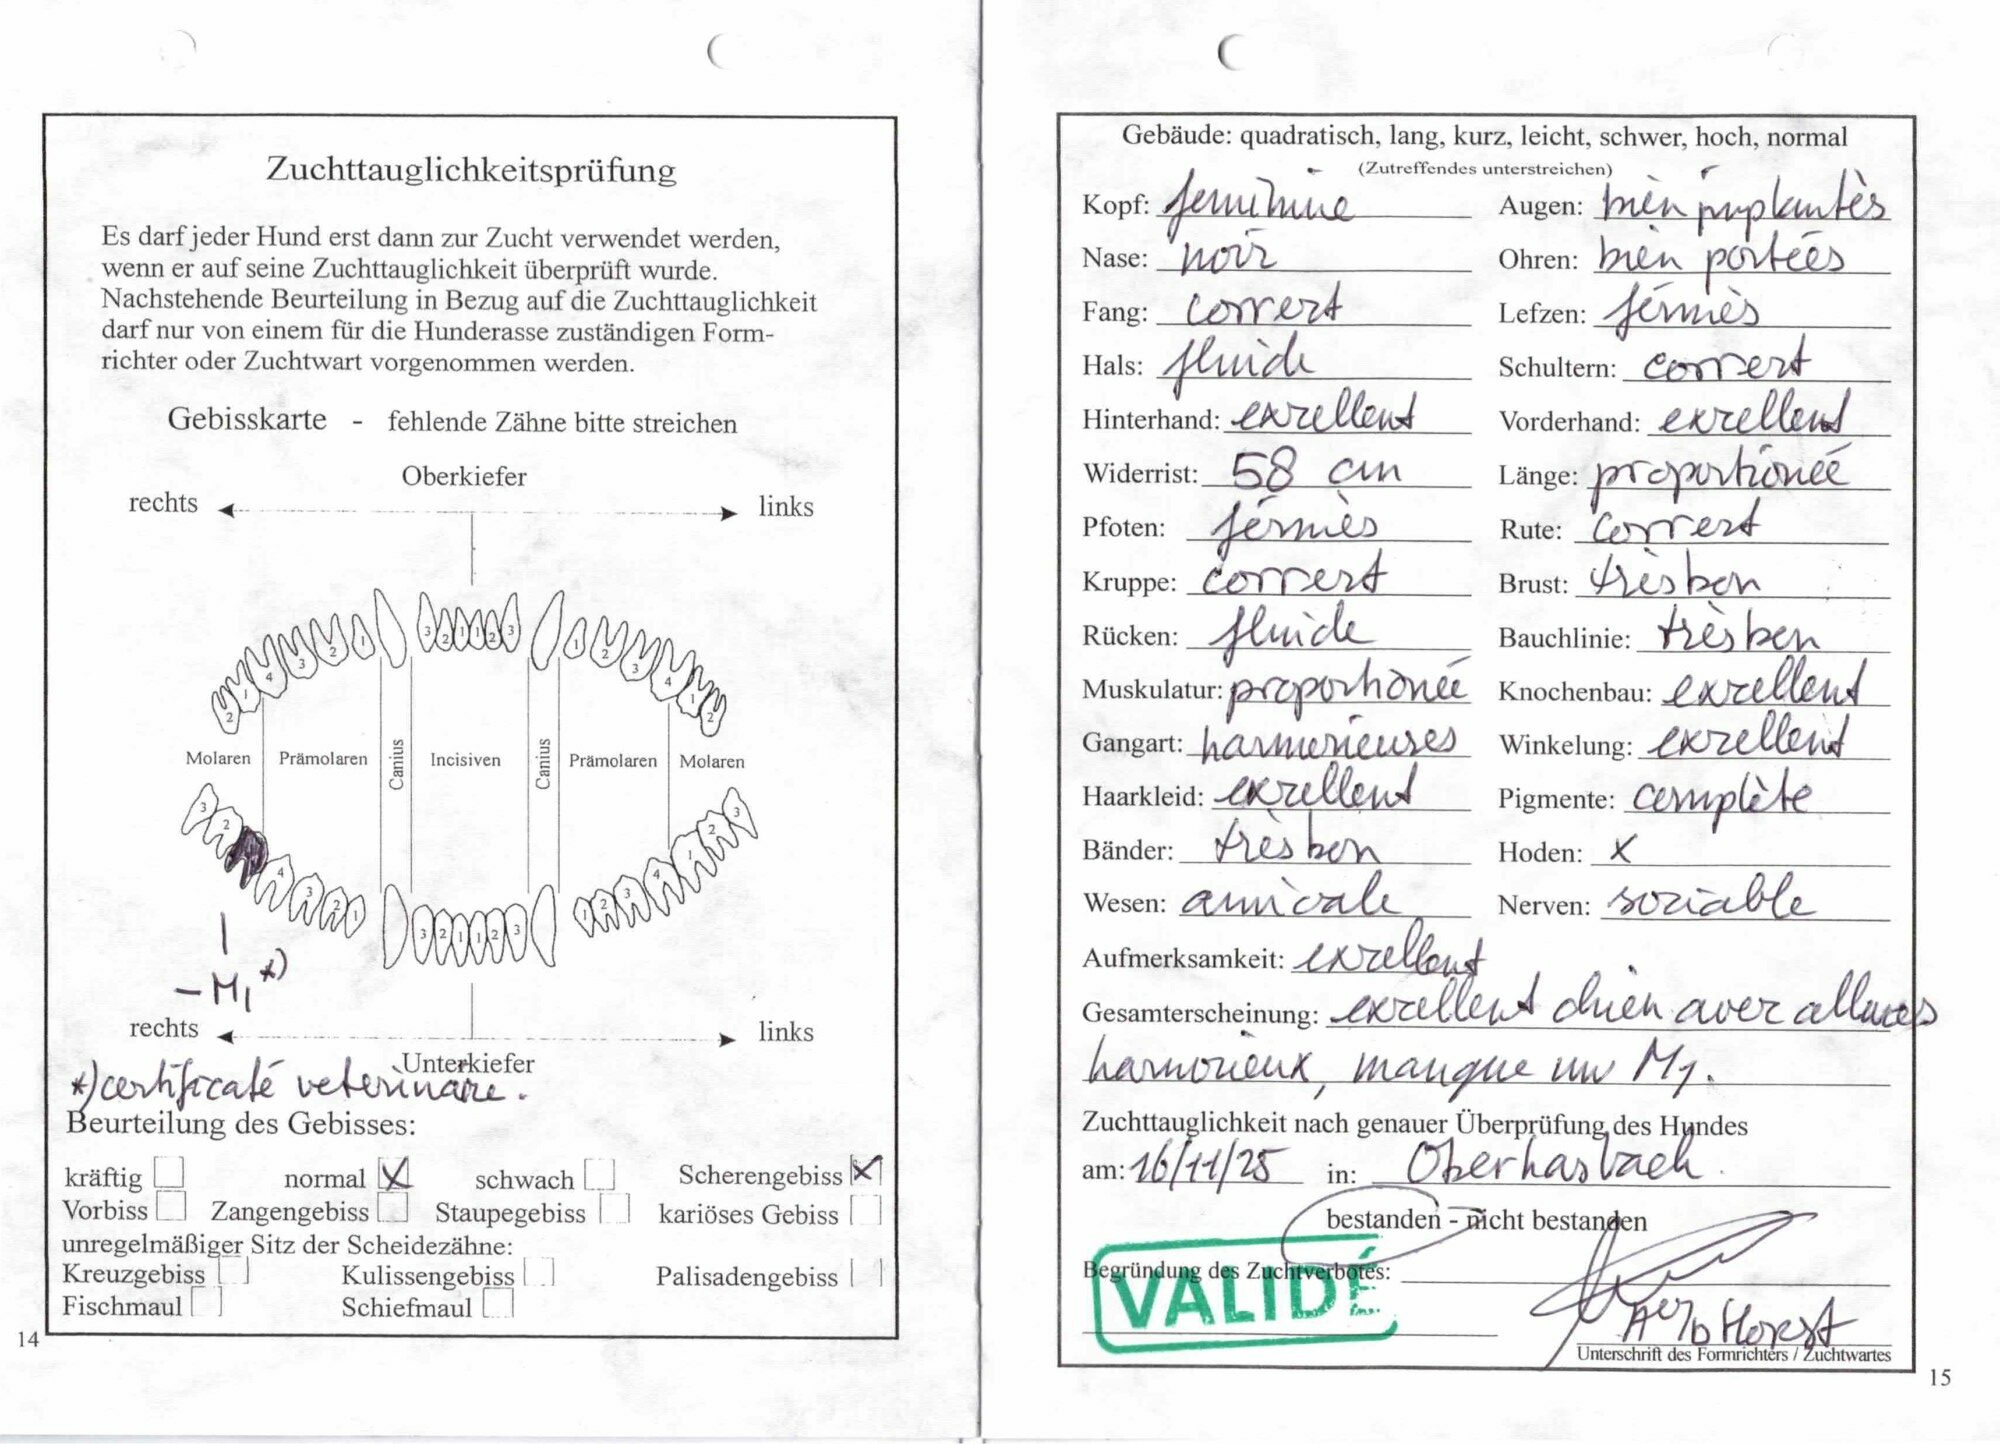 Zuchttauglichkeitsprüfung
Es darf jeder Hund erst dann zur Zucht verwendet werden,
wenn er auf seine Zuchttauglichkeit überprüft wurde.
Nachstehende Beurteilung in Bezug auf die Zuchttauglichkeit
darf nur von einem für die Hunderasse zuständigen Form-
richter oder Zuchtwart vorgenommen werden.
Gebisskarte - fehlende Zähne bitte streichen
Oberkiefer
rechts links
3 2 1 1 2 3
1 2 3 4 1 2
1 2 3 4 1 2
Molaren Prämolaren Canius Incisiven Canius Prämolaren Molaren
3 2 4 3 2 1
3 2 1 1 2 3
1 2 3 4 1 2 3
- M1 *)
rechts links
Unterkiefer
*) certificaté veterinare.
Beurteilung des Gebisses:
kräftig normal X schwach Scherengebiss X
Vorbiss Zangengebiss Staupegebiss kariöses Gebiss
unregelmäßiger Sitz der Scheidezähne:
Kreuzgebiss Kulissengebiss Palisadengebiss
Fischmaul Schiefmaul
14
Gebäude: quadratisch, lang, kurz, leicht, schwer, hoch, normal
(Zutreffendes unterstreichen)
Kopf: feminine Augen: bien implantès
Nase: noir Ohren: bien portées
Fang: correct Lefzen: férmès
Hals: fluide Schultern: correct
Hinterhand: excellent Vorderhand: excellent
Widerrist: 58 cm Länge: proportionéé
Pfoten: férmès Rute: correct
Kruppe: correct Brust: très bon
Rücken: fluide Bauchlinie: très bon
Muskulatur: proportionéé Knochenbau: excellent
Gangart: harmonieuses Winkelung: excellent
Haarkleid: excellent Pigmente: complète
Bänder: très bon Hoden: X
Wesen: amicale Nerven: sociable
Aufmerksamkeit: excellent
Gesamterscheinung: excellent chien avec allures
harmonieux, manque un M1.
Zuchttauglichkeit nach genauer Überprüfung des Hundes
am: 16/11/25 in: Oberhasbach
bestanden - nicht bestanden
Begründung des Zuchtverbotes:
VALIDÉ
Horst
Unterschrift des Formrichters / Zuchtwartes
15